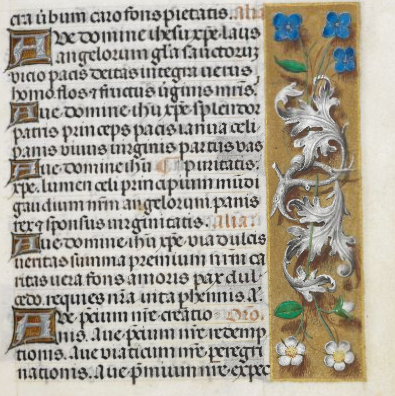 cra v̄bum caro fons pietatis. Alia
Ave domine ihesu xp̄e laus
angelorum gl̄a sanctorum
visio pacis deitas integra verus
homo flos & fructus v̄ginis mr̄is.
Aue domine ihū xp̄e splendor
patris princeps pacis ianua celi
panis viuus virginis partus vas
Aue domine ihū puritatis.
xp̄e. lumen celi principium mūdi
gaudium nr̄m angelorum panis
rex & sponsus virginitatis. Alia
Aue domine ihū xp̄e via dulcis
veritas summa premium nr̄m ca
ritas vera fons amoris pax dul
cedo. requies nr̄a vita phennis. a.
Ave pcium nr̄e creatio Oro.
nis. Aue p̄cium nr̄e redemp
tionis. Aue viaticum nr̄e peregri
nationis. Aue p̄mium nr̄e expec